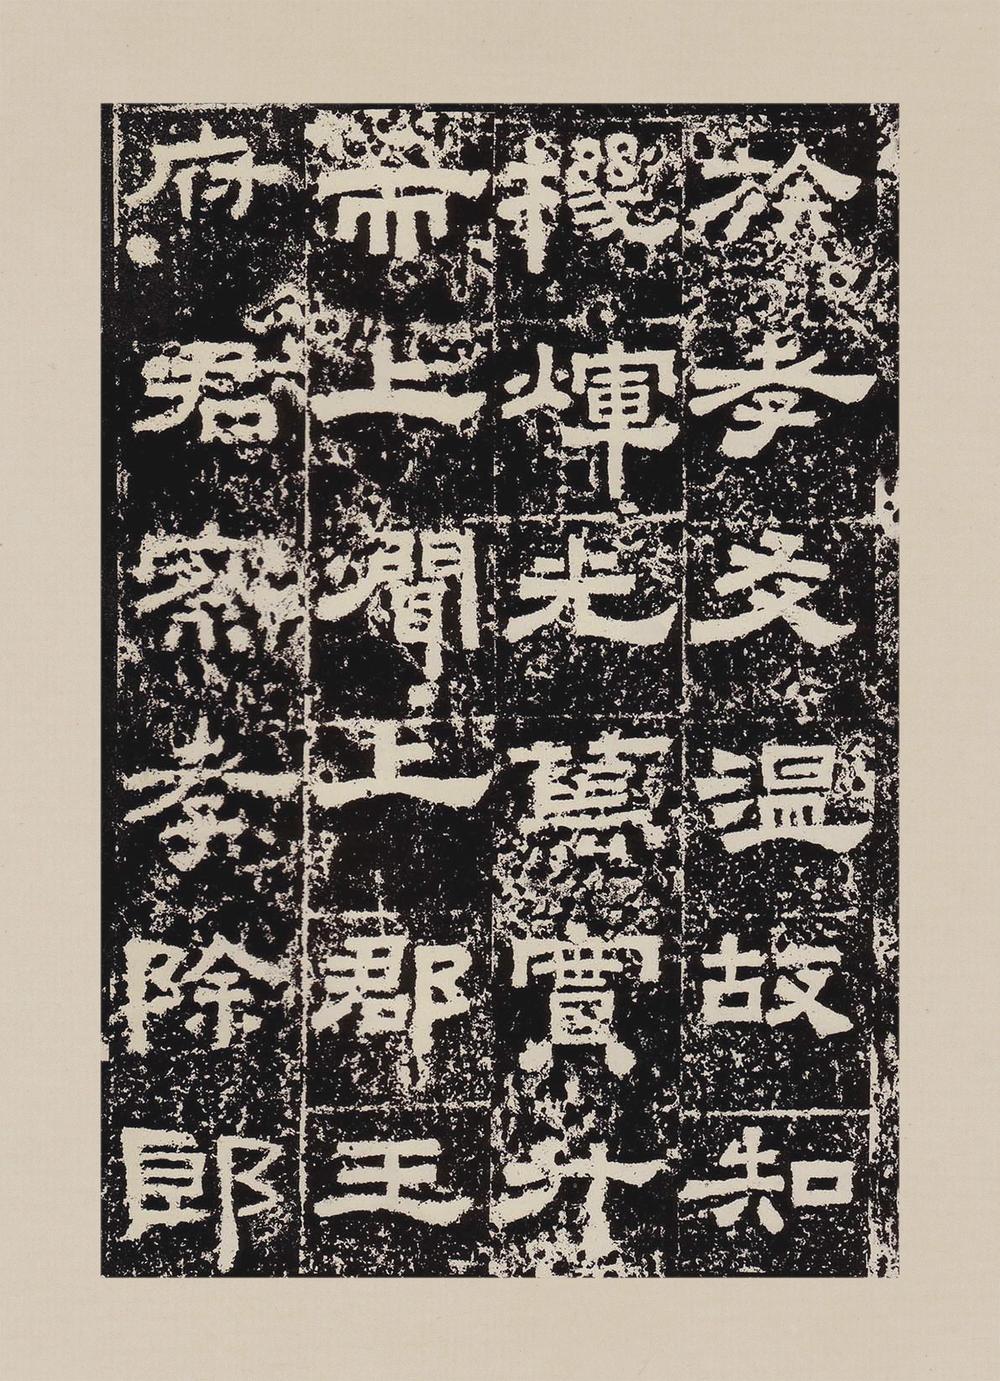 於孝友溫故知
機煇光篤實升
而上聞上郡王
府君察孝除郎